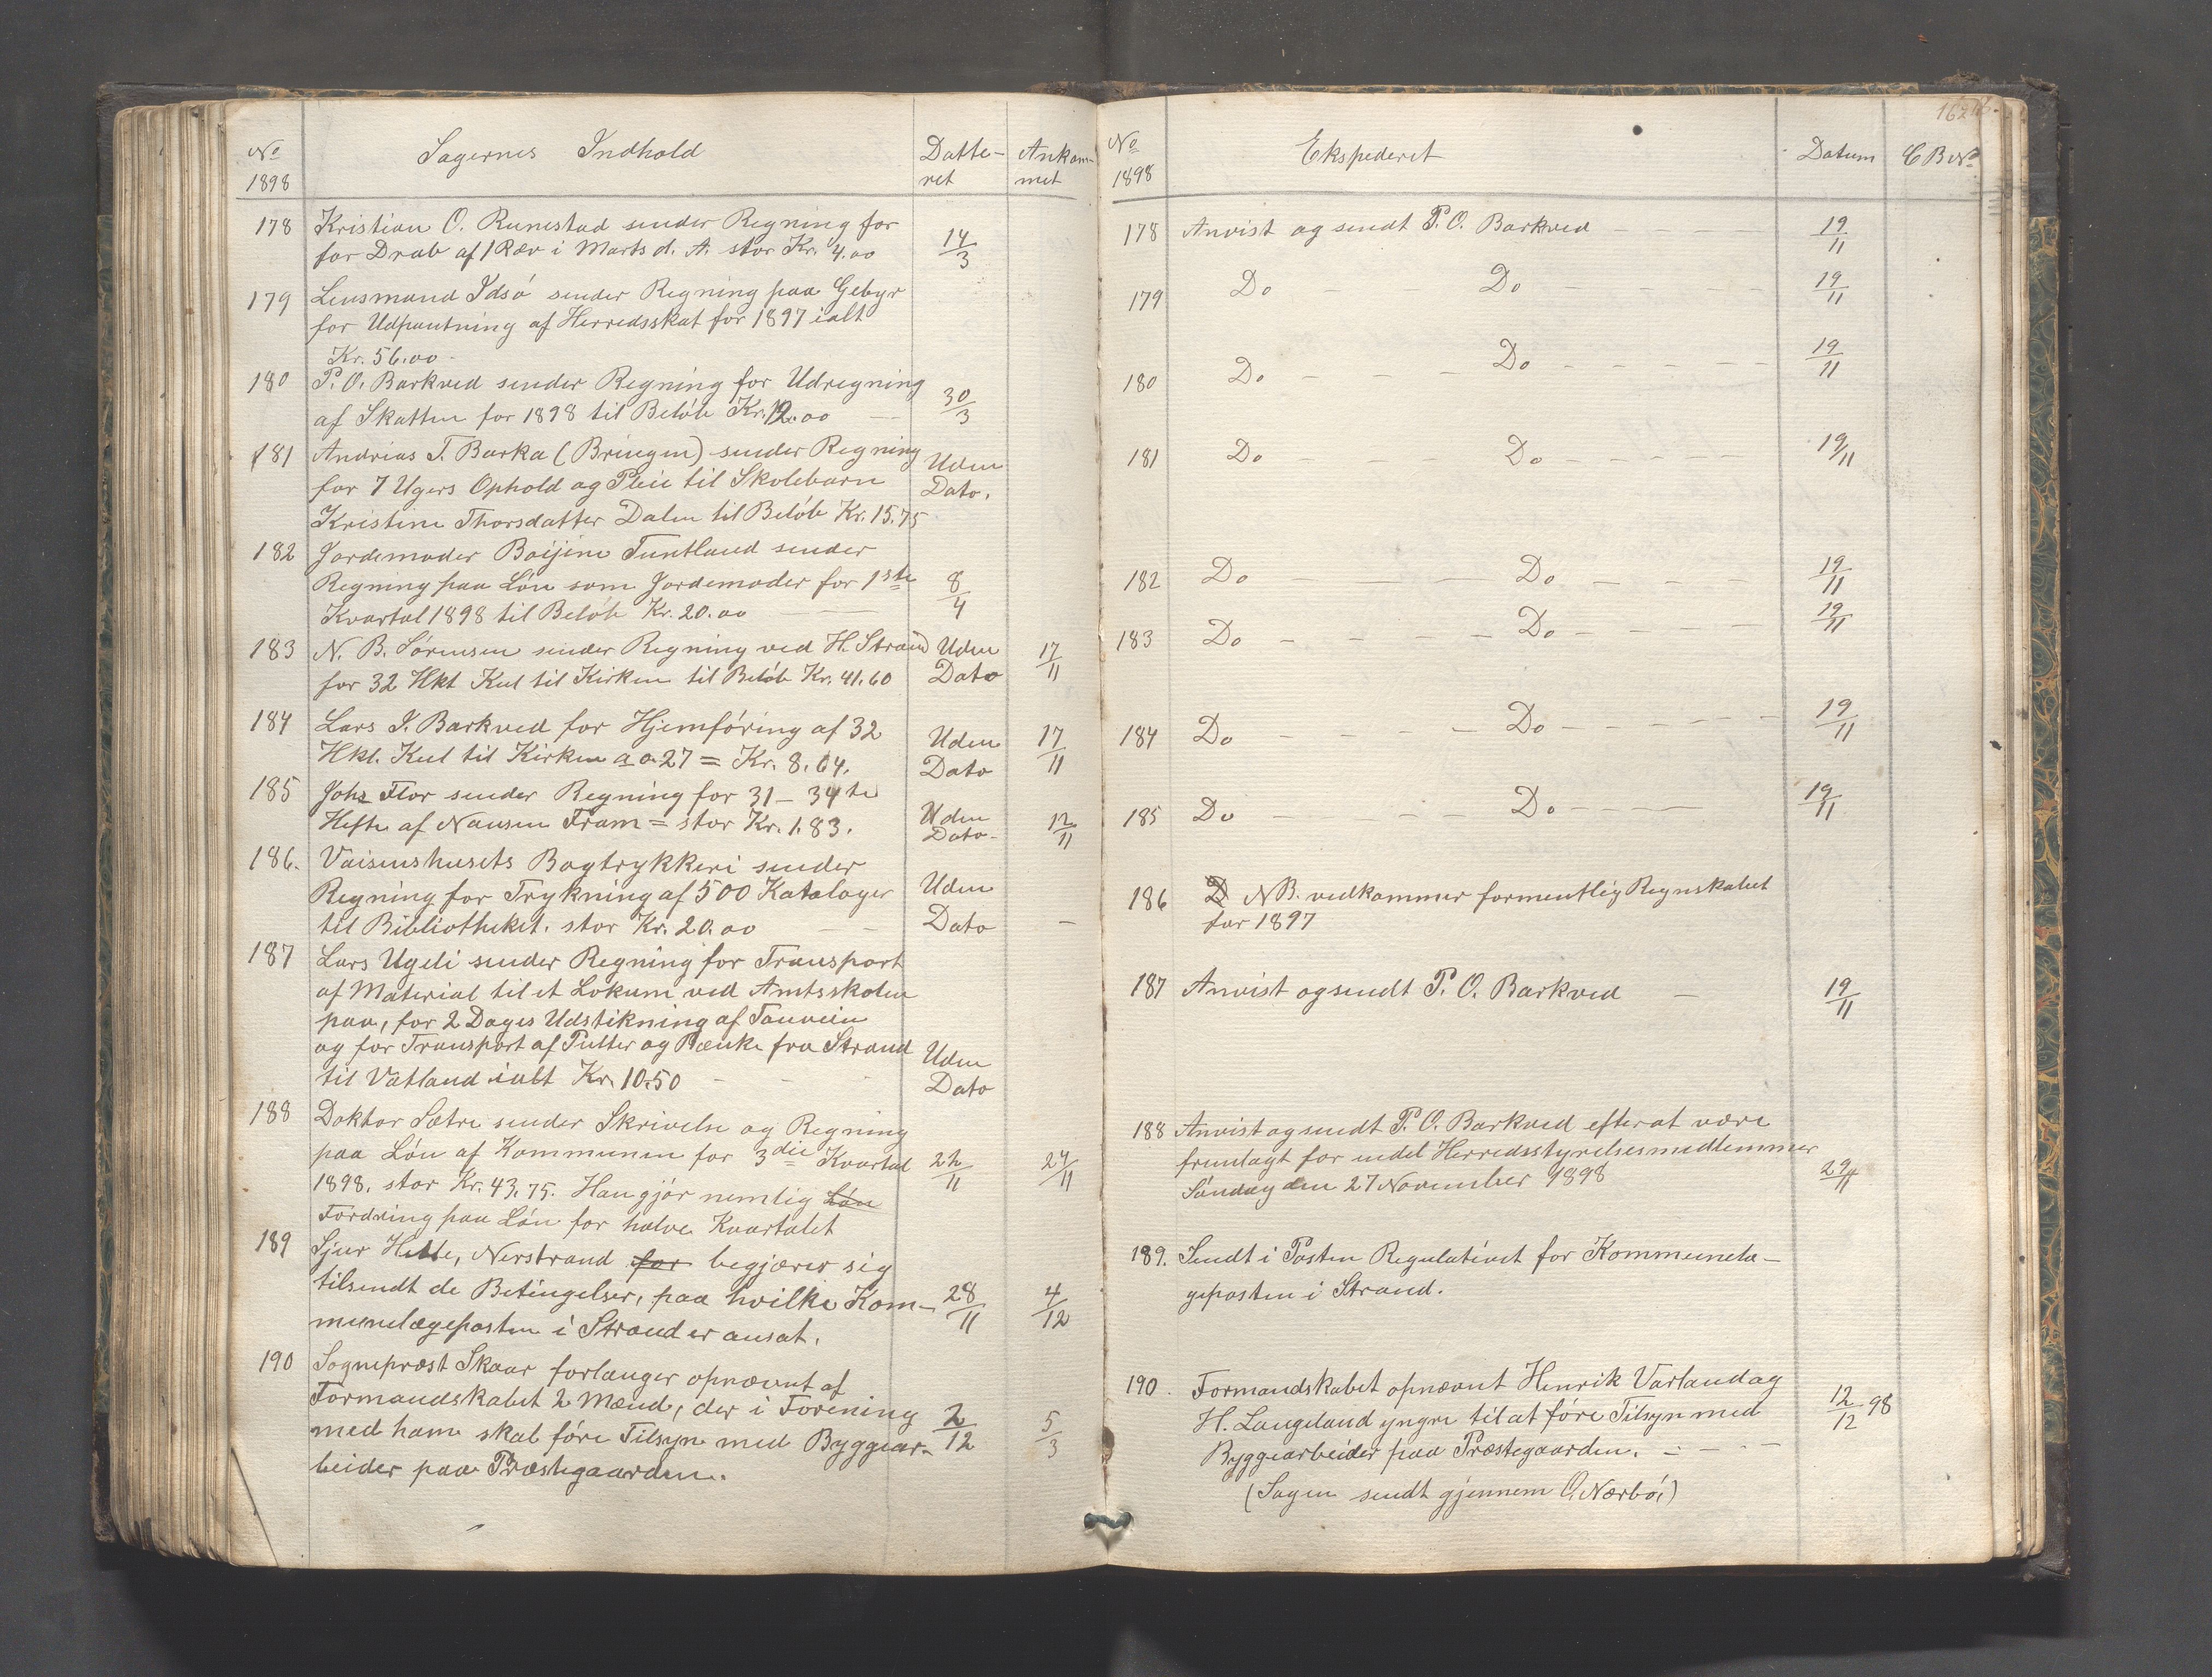 No 1898 Sagernes Indhold Datte-ret Ankommet
178 Kristian O. Runestad sender Regning for
for Drab af 1 Ræv i Marts d. A. stor Kr. 4.00 14/3
179 Lensmand Idsø sender Regning paa Gebyr
for Udpantning af Herredsskat for 1897 ialt
Kr. 56.00 -
180 P. O. Barkved sender Regning for Udregning
af Skatten for 1898 til Beløb Kr. 12.00 — 30/3
181 Andrias T. Barka (Bringen) sender Regning Uden
for 7 Ugers Ophold og Pleie til Skolebarn Dato.
Kristine Thorsdatter Dalen til Beløb Kr. 15.75
182 Jordemoder Boijine Tuntland sender
Regning paa Løn som Jordemoder for 1ste 8/4
Kvartal 1898 til Beløb Kr. 20.00 —
183 N. B. Sørensen sender Regning ved H. Strand Uden 17/11
for 32 Hkt Kul til Kirken til Beløb Kr. 41.60 Dato
184 Lars I. Barkved for Hjemføring af 32 Uden 17/11
Hkl. Kul til Kirken a 0.27 = Kr. 8.64. Dato
185 Johs Flor sender Regning for 31 - 34te Uden
Hefte af Nansen Fram = stor Kr. 1.83. Dato - 12/11
186. Vaisenshusets Bogtrykkeri sender
Regning for Trykning af 500 Kataloger Uden
til Bibliotheket. stor Kr. 20.00 — — Dato —
187 Lars Ugeli sender Regning for Transport
af Material til et Lokum ved Amtsskolen
paa, for 2 Dages Udstikning af Tauveien
og for Transport af Pulter og Bænke fra Strand Uden
til Vatland ialt Kr. 10.50 - - - Dato
188 Doktor Sætre sender Skrivelse og Regning
paa Løn af Kommunen for 3die Kvartal 22/11 24/11
1898. stor Kr. 43.75. Han gjør nemlig Løn
Fordring paa Løn for halve Kvartalet
189 Sjur Hette, Nerstrand for begjærer sig
tilsendt de Betingelser, paa hvilke Kom- 28/11 4/12
munelægeposten i Strand er ansat.
190 Sognepræst Skaar forlanger opnævnt af
Formandskabet 2 Mænd, der i Forening
med ham skal føre Tilsyn med Byggear- 2/12 5/3
beider paa Præstegaarden.
No 1898 Ekspederet Datum CB No
178 Anvist og sendt P. O. Barkved — — — 19/11
179 Do — — Do — — — 19/11
180 Do — — — Do — — — 19/11
181 Do — — — Do — — — 19/11
182 Do — — — Do — — — 19/11
183 Do — — — Do — — — 19/11
184 Do — — — Do — — — 19/11
185 Do — — — Do — — — 19/11
186 D NB. vedkommer formentlig Regnskabet
for 1897
187 Anvist og sendt P. O. Barkved — 19/11
188 Anvist og sendt P. O. Barkved efterat være
fremlagt for endel Herredsstyrelsesmedlemmer
Søndag den 27 November 1898 29/11
189. Sendt i Posten Regulativet for Kommunelæ-
geposten i Strand.
190. Formandskabet opnævnt Henrik Varland og
H. Langeland yngre til at føre Tilsyn med 12/12 98
Byggearbeider paa Præstegaarden. — — —
(Sagen sendt gjennem O. Nærbø.)